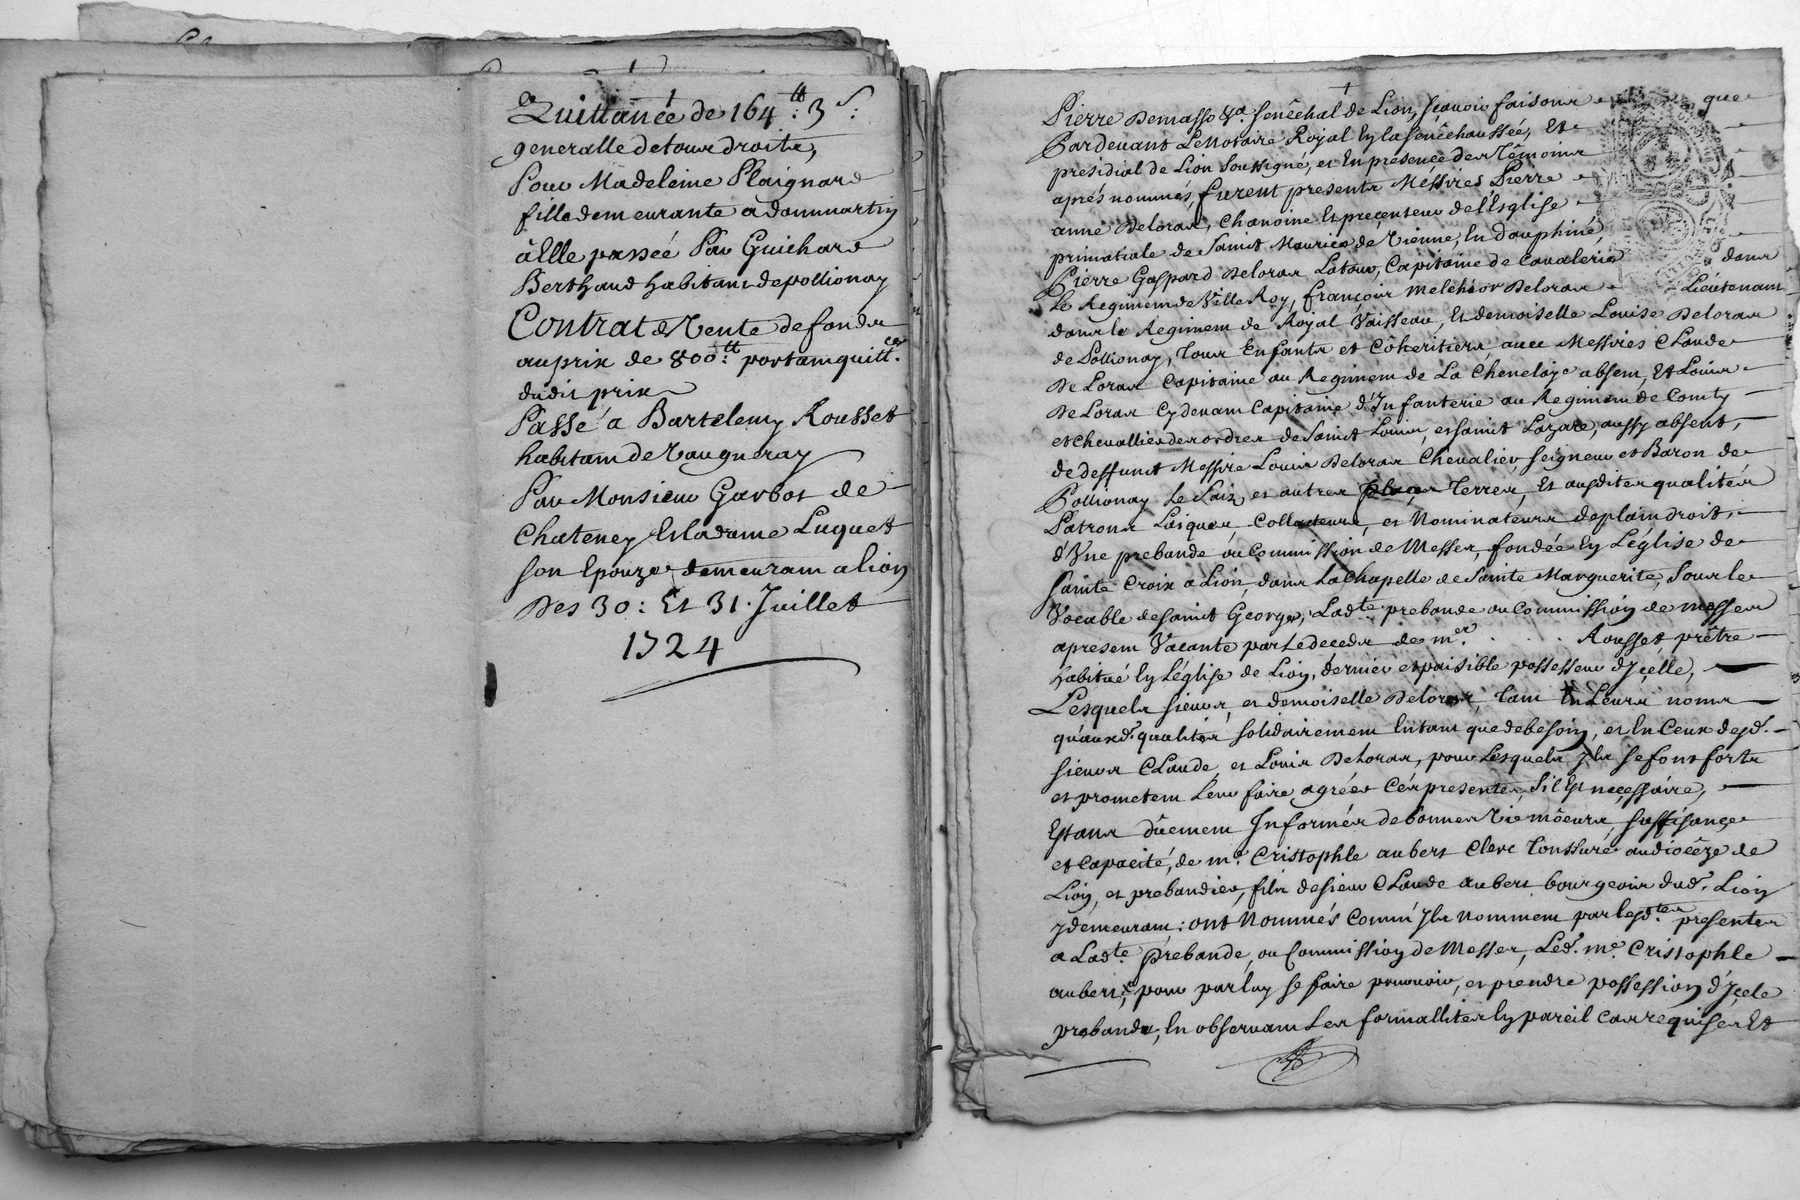 Quittance de 164 ₶: 3 s:
generalle de tous droits,
Pour Madeleine Plaignard
fille demeurante a dommartin
à Elle passeé Par Guichard
Berthaud habitant de pollionay
Contrat de Vente de fonds
au prix de 800:₶ portant quitt.ce
dudit prix
Passé a Bartelemy Rousset
habitant de Vaugneray
Par Monsieur Garbot de
Chateney Et la dame Luquet
son Epouze demeurant a lion
Des 30: Et 31. Juillet
1724
Pierre Demasso Sénéchal de Lion, sçavoir faisons que
Pardevant Le Notaire Royal En la senéchaussée, Et
présidial de Lion soussigné, et En présence des Témoins
aprés nommés, furent presents Messires Pierre
anne Deloras, Chanoine Et precenteur de l'Esglise
primatiale de Saint Maurice de Vienne, En dauphiné,
Pierre Gaspard Deloras Latour, Capitaine de Cavalerie dans
Le Regiment de Villeroy, françois Melchior Deloras Lieutenant
dans le Regiment de Royal Vaisseau, Et demoiselle Louise Deloras
de Pollionay, Tous Enfants et Cöheritiers, avec Messires Claude
De Loras Capitaine au Regiment de La Chenelaye absent, Et Louis
De Loras Cydevant Capitaine d'Infanterie au Regiment de Conty
et chevallier des ordres de Saint Louis, et saint Lazare, aussy absent,
de deffunct Messire Louis Deloras Chevalier seigneur et Baron de
Pollionay Le Saix, et autres places Terres, Et ausdites qualités
Patrons Laiques Collateurs, et Nominateurs de plain droit,
d'Vne prebande ou Commission de Messes, fondée En L'église de
Sainte Croix a Lion, dans La Chapelle de Sainte Marguerite, sous le
Vocable de saint George, Ladte prebande ou Commission de messes
a present Vacante par Le deceds de m.er . . . Rousset, prêtre
habitué En L'église de Lion, dernier et paisible possesseur d'Ycelle,
Lesquels sieurs, et demoiselle Deloras, Tant En Leurs noms
qu'auxd. qualités solidairement Entant que de besoin, et En Ceux desd.
sieurs Claude, et Louis De Loras, pour Lesquels Yls se font forts
et promettent Leur faire agréer Cés presentes, s'il Est necessaire,
Estans dûement Informés de bonnes Vie môeurs, suffisance
et Capacité, de m.e Cristophle aubert Clerc Tonssuré au diocéze de
Lion, et prebandier, fils de sieur Claude aubert bourgeois dud. Lion
y demeurant: ont Nommés Comm' Yls Nomment par lesd.tes presentes
a Ladte Prebande, ou Commission de Messes, Led. m.e Cristophle
aubert, pour par luy se faire pourvoir, et prendre possession d'Ycele
prebande, En observant Les formallités En pareil Cas requises Et